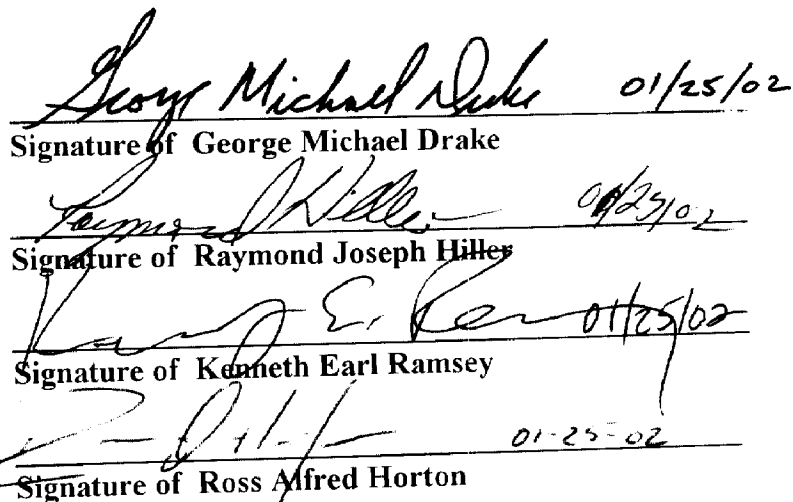 George Michael Drake 01/25/02
Signature of George Michael Drake
Raymond Hiller 01/25/02
Signature of Raymond Joseph Hiller
E. 01/25/02
Signature of Kenneth Earl Ramsey
01-25-02
Signature of Ross Alfred Horton